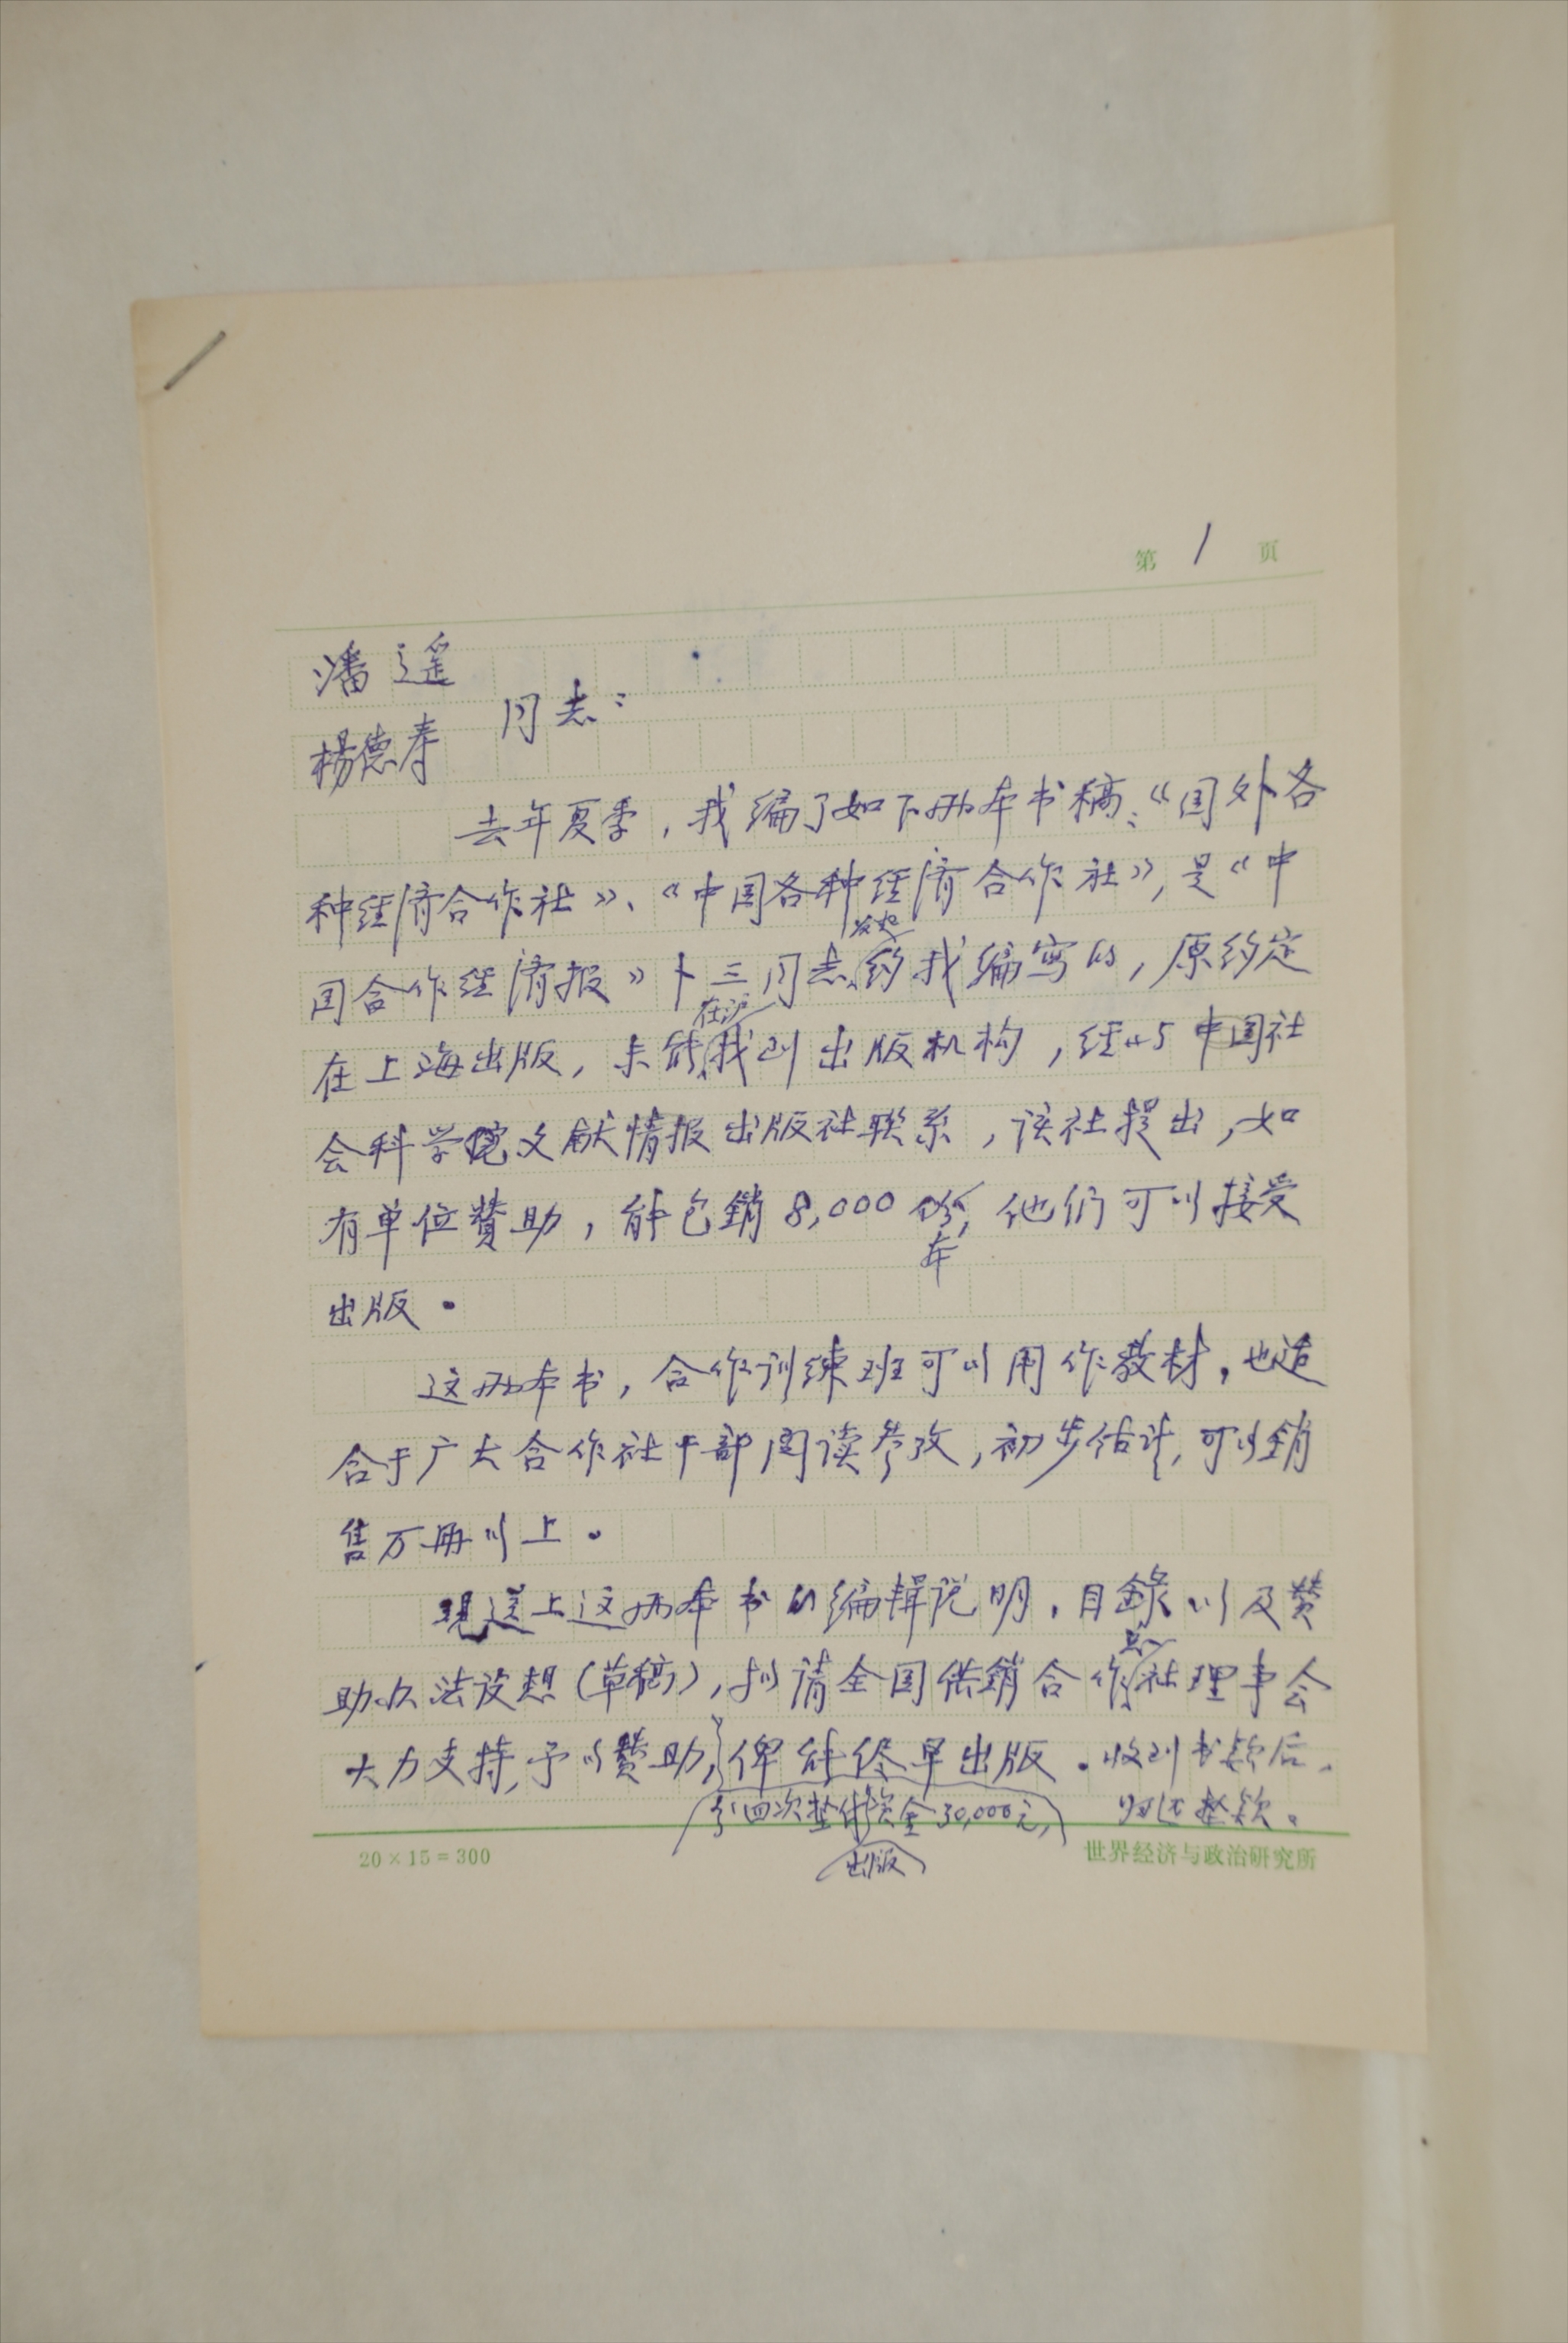 第 1 页
潘遥
杨德寿 同志：
去年夏季，我编了如下两本书稿：《国外各
种经济合作社》、《中国各种经济合作社》，是《中
发起
国合作经济报》卜三同志约我编写的，原约定
在沪
在上海出版，未能找到出版机构，经与中国社
会科学院文献情报出版社联系，该社提出，如
有单位赞助，能包銷8,000份，他们可以接受
本
出版。
这两本书，合作训练班可以用作教材，也适
合于广大合作社干部阅读参攷，初步估计，可以銷
售万册以上。
现送上这两本书的编辑说明，目錄以及赞
助办法设想（草稿），拟请全国供銷合作社理事会
大力支持，予以赞助，俾能侭早出版。收到书款后，
分四次垫付资金30,000元， 归还垫款。
出版
20×15=300 世界经济与政治研究所